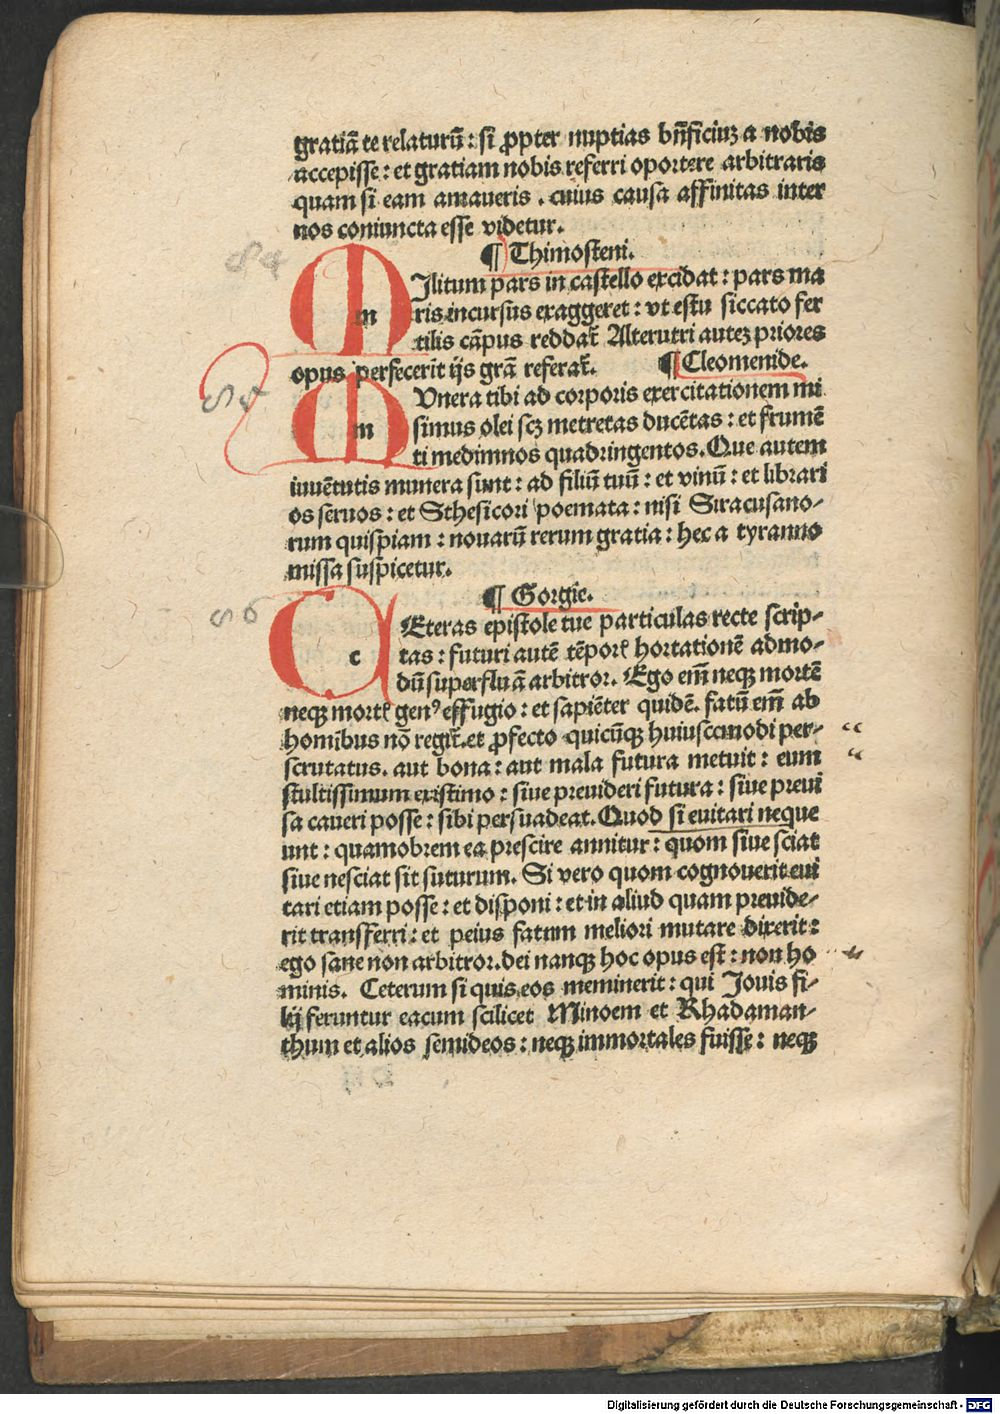 gratiā te relaturū: si ꝓpter nuptias bn̄ficiuꝫ a nobis
accepisse: et gratiam nobis referri oportere arbitraris
quam si eam amaueris. cuius causa affinitas inter
nos coniuncta esse videtur.
84
¶ Thimosteni.
mIlitum pars in castello excidat: pars ma
ris incursus exaggeret: vt estu siccato fer
tilis cāpus reddat᷑. Alterutri auteꝫ priores
opus perfecerit ijs grā referat᷑. ¶ Cleomenide.
85
mVnera tibi ad corporis exercitationem mi
simus olei scꝫ metretas ducētas: et frumē
ti medimnos quadringentos. Que autem
iuuētutis munera sunt: ad filiū tuū: et vinū: et librari
os seruos: et Sthesicori poemata: nisi Siracusano-
rum quispiam: nouarū rerum gratia: hec a tyranno
missa suspicetur.
¶ Gorgie.
86
cEteras epistole tue particulas recte scrip-
tas: futuri autē tēporꝭ hortationē admo-
dū superfluā arbitror. Ego em̄ neqꝫ mortē
neqꝫ mortꝭ genꝰ effugio: et sapiēter quidē. fatū em̄ ab
homībus nō regit᷑. et ꝓfecto quicūqꝫ huiuscemodi per-
scrutatus. aut bona: aut mala futura metuit: eum
stultissimum existimo: siue preuideri futura: siue preui
sa caueri posse: sibi persuadeat. Quod si euitari neque
unt: quamobrem ea prescire annitur: quom siue sciat
siue nesciat sit suturum. Si vero quom cognouerit eui
tari etiam posse: et disponi: et in aliud quam preuide-
rit transferri: et peius fatum meliori mutare dixerit:
ego sane non arbitror. dei nanqꝫ hoc opus est: non ho
minis. Ceterum si quis eos meminerit: qui Jouis fi-
lij feruntur eacum scilicet Minoem et Rhadaman-
thum et alios semideos: neqꝫ immortales fuisse: neqꝫ
Digitalisierung gefördert durch die Deutsche Forschungsgemeinschaft - DFG